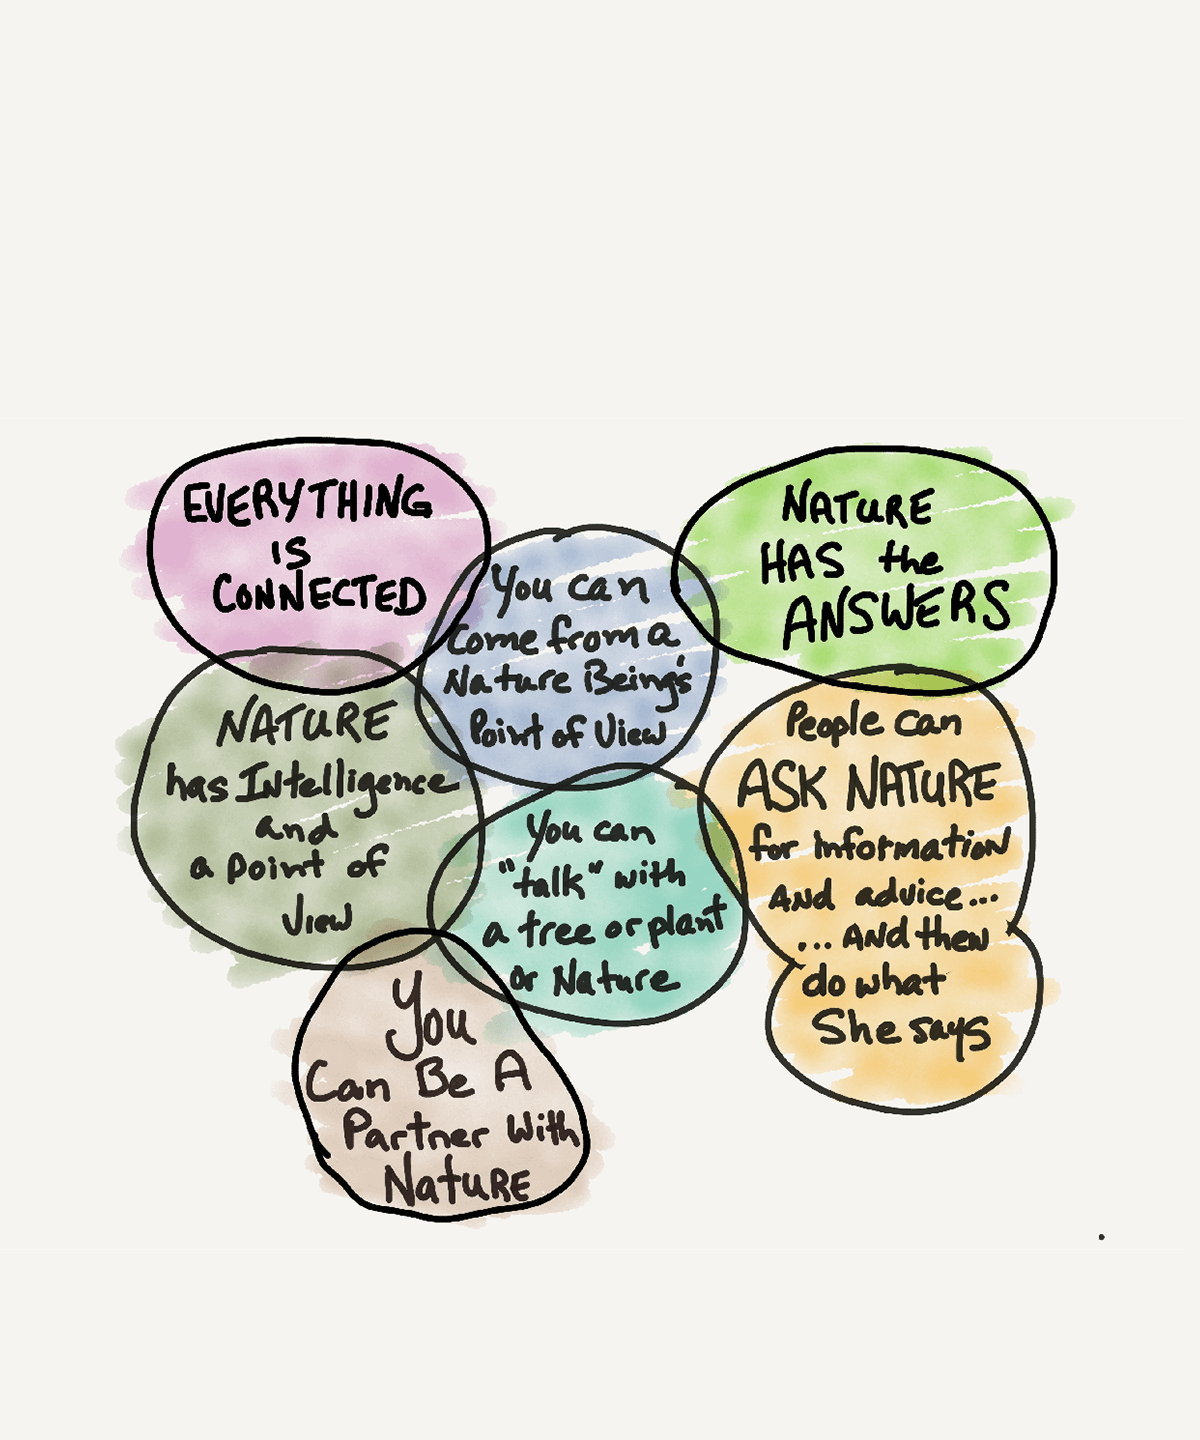 EVERYTHING
IS
CONNECTED
You can
come from a
Nature Being's
Point of View
NATURE
HAS the
ANSWERS
NATURE
has Intelligence
and
a point of
View
You can
"talk" with
a tree or plant
or Nature
People can
ASK NATURE
for information
AND advice...
... AND then
do what
She says
You
Can Be A
Partner With
NatURE